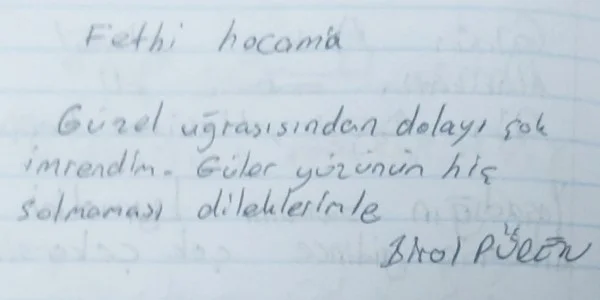 Fethi hocama
Güzel uğraşısından dolayı çok
imrendim. Güler yüzünün hiç
solmaması dileklerimle
Birol